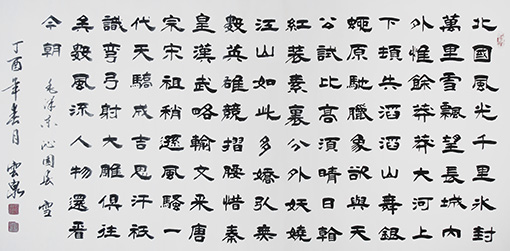 北國風光千里冰封
萬里雪飄望長城內
外惟餘莽莽大河上
下頓失滔滔山舞銀
蛇原馳臘象欲與天
公試比高須晴日看
紅裝素裹分外妖嬈
江山如此多嬌引無
數英雄競摺腰惜秦
皇漢武略輸文采唐
宗宋祖稍遜風騷一
代天驕成吉思汗祗
識彎弓射大雕俱往
矣數風流人物還看
今朝 毛澤東沁園春雪
丁酉年春月雲泉